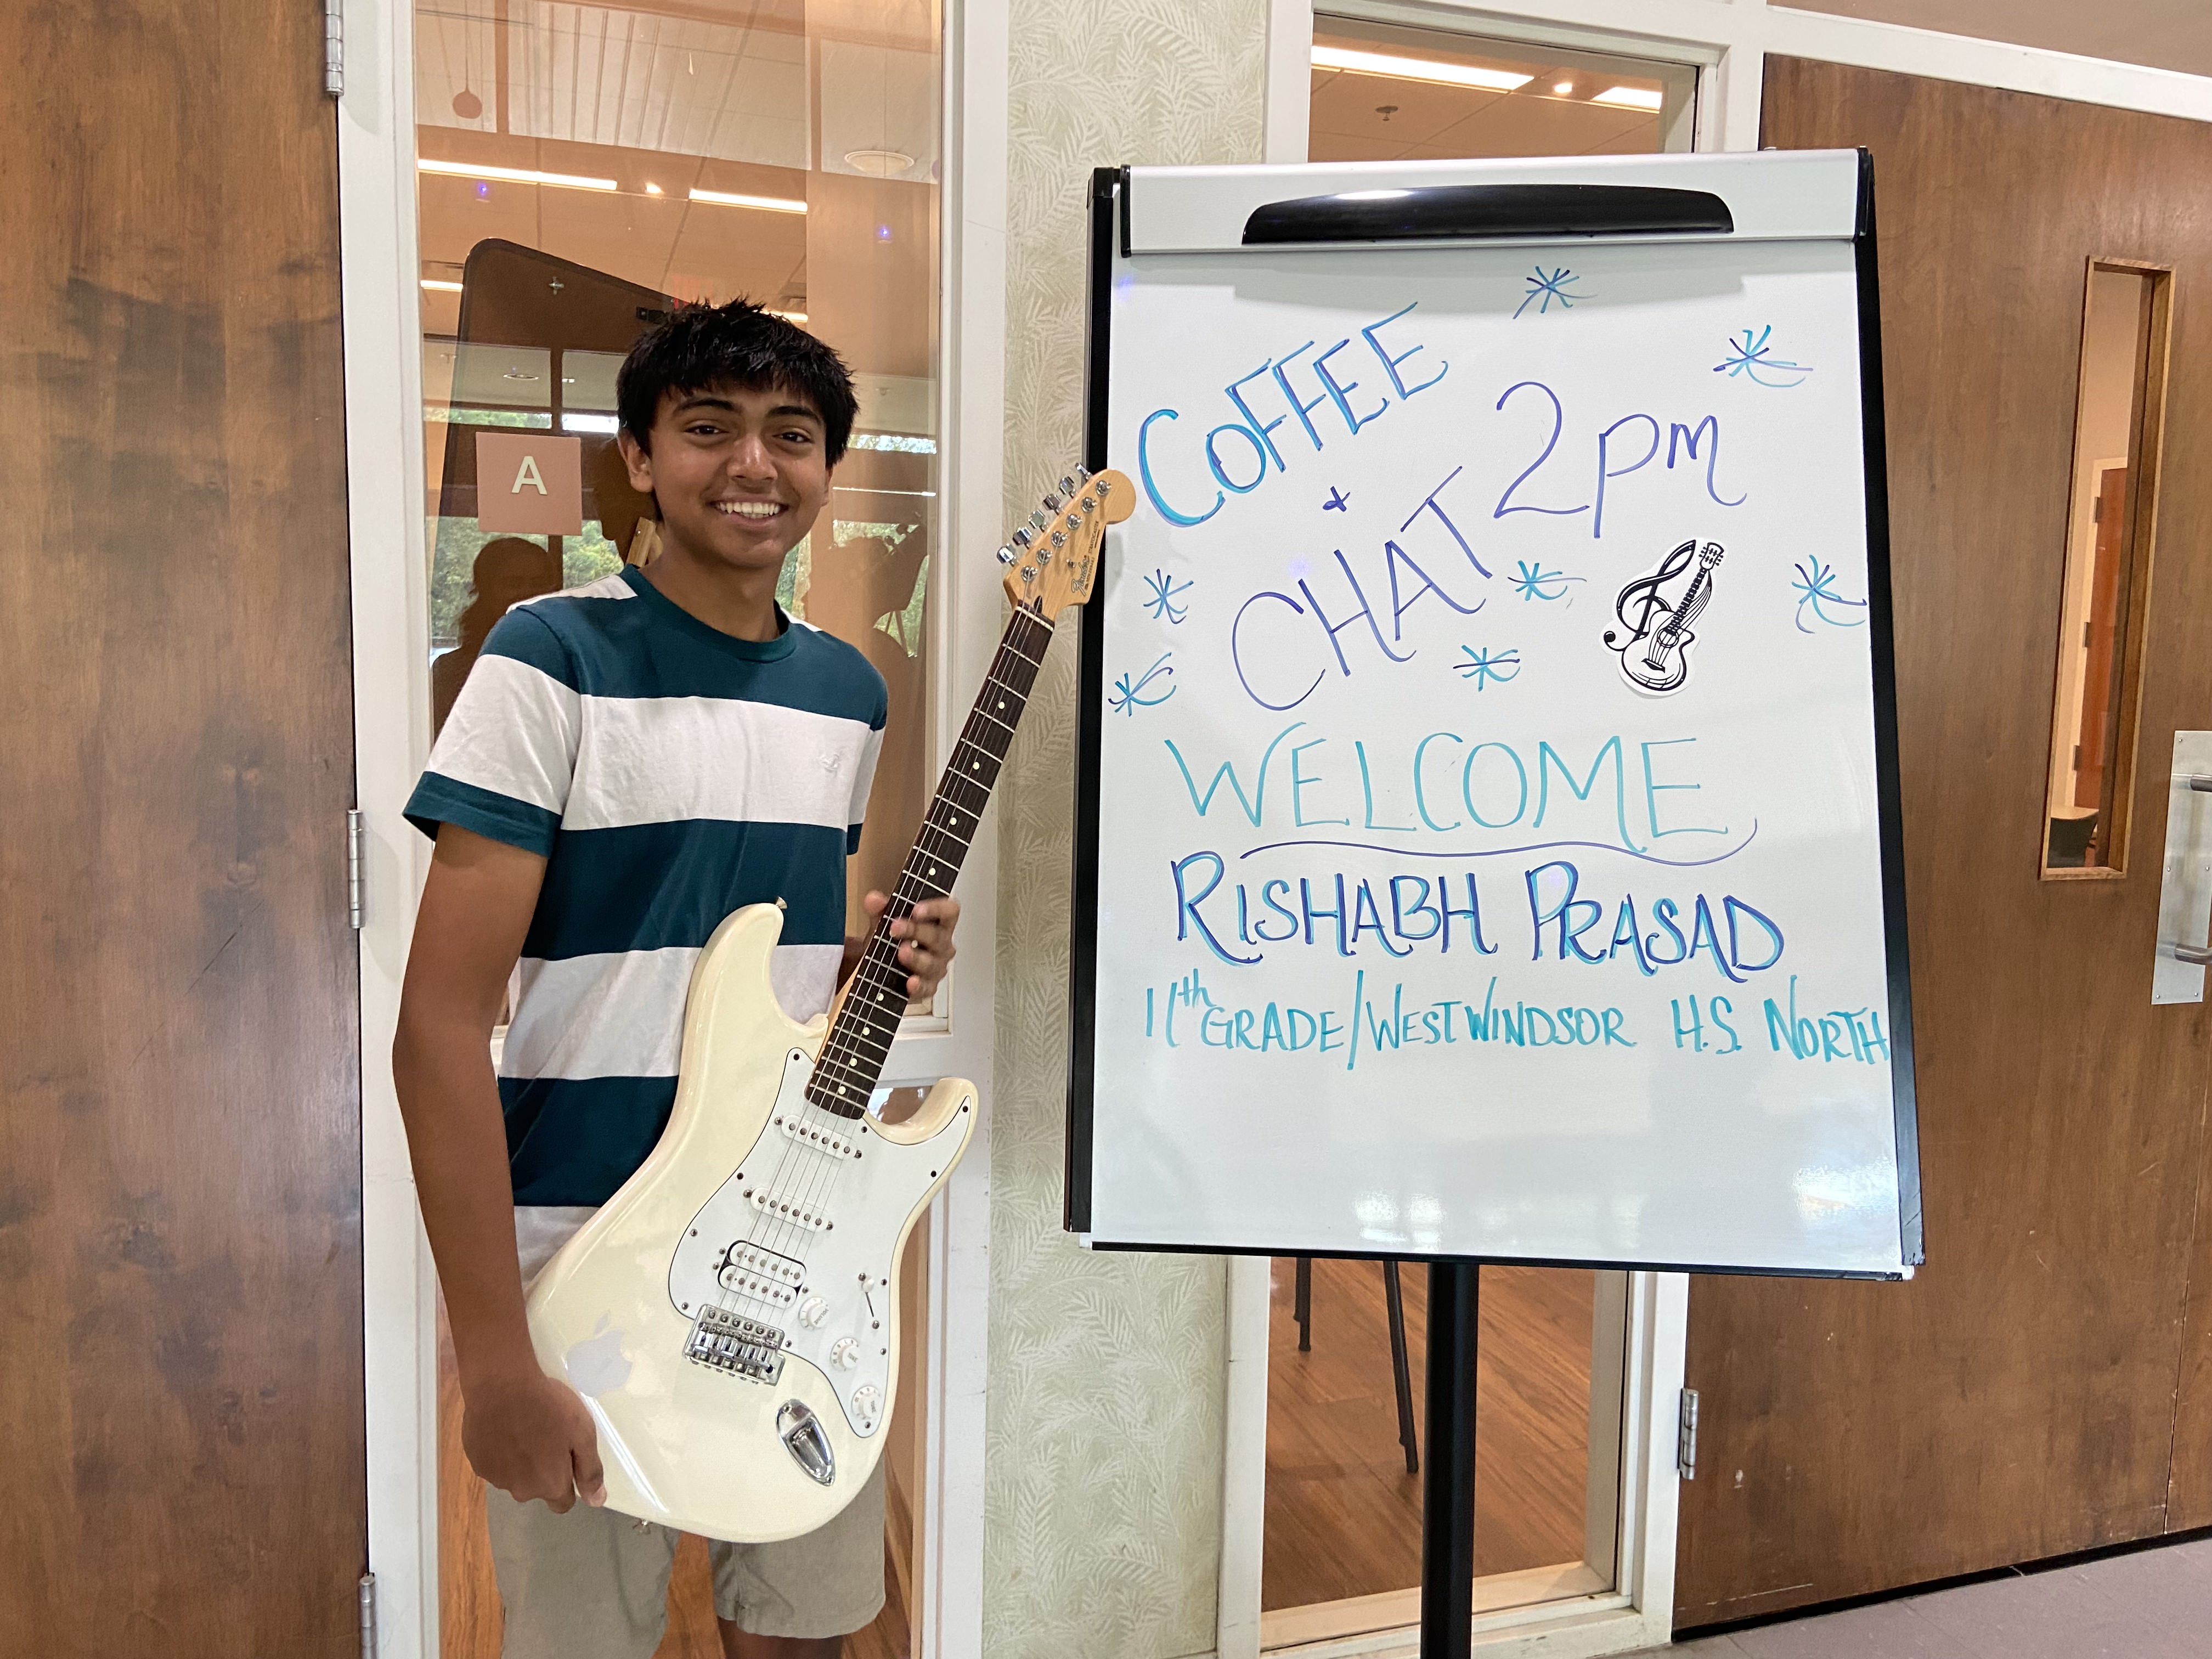 A
COFFEE
&
CHAT
2pm
WELCOME
RISHABH PRASAD
11th GRADE/WEST WINDSOR H.S. NORTH